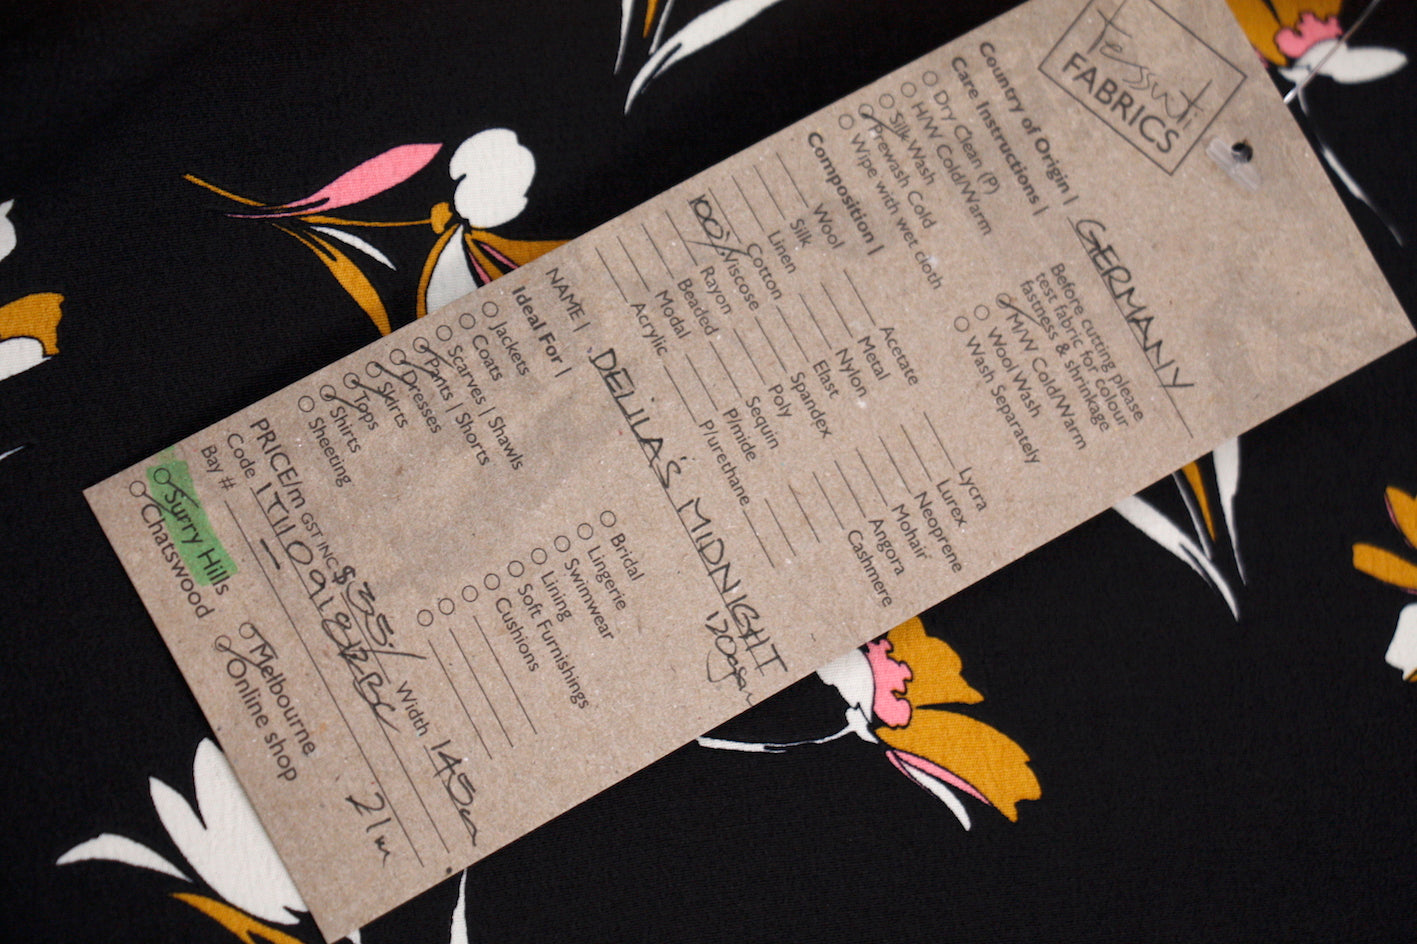 Tessuti
FABRICS
Country of Origin | GERMANY
Care Instructions |
Dry Clean (P)
H/W Cold/Warm
Silk Wash
Prewash Cold
Wipe with wet cloth
Before cutting please
test fabric for colour
fastness & shrinkage
M/W Cold/Warm
Wool Wash
Wash Separately
Composition |
Wool
Silk
Linen
Cotton
100% Viscose
Rayon
Beaded
Modal
Acrylic
Acetate
Metal
Nylon
Elast
Spandex
Poly
Sequin
P/mide
P/urethane
Lycra
Lurex
Neoprene
Mohair
Angora
Cashmere
NAME | DELILA'S MIDNIGHT
120gsm
Ideal For |
Jackets
Coats
Scarves | Shawls
Pants | Shorts
Dresses
Skirts
Tops
Shirts
Sheeting
Bridal
Lingerie
Swimwear
Lining
Soft Furnishings
Cushions
PRICE/m GST INC $35/ Width 145cm
Code
Bay #
21m
Surry Hills
Chatswood
Melbourne
Online shop